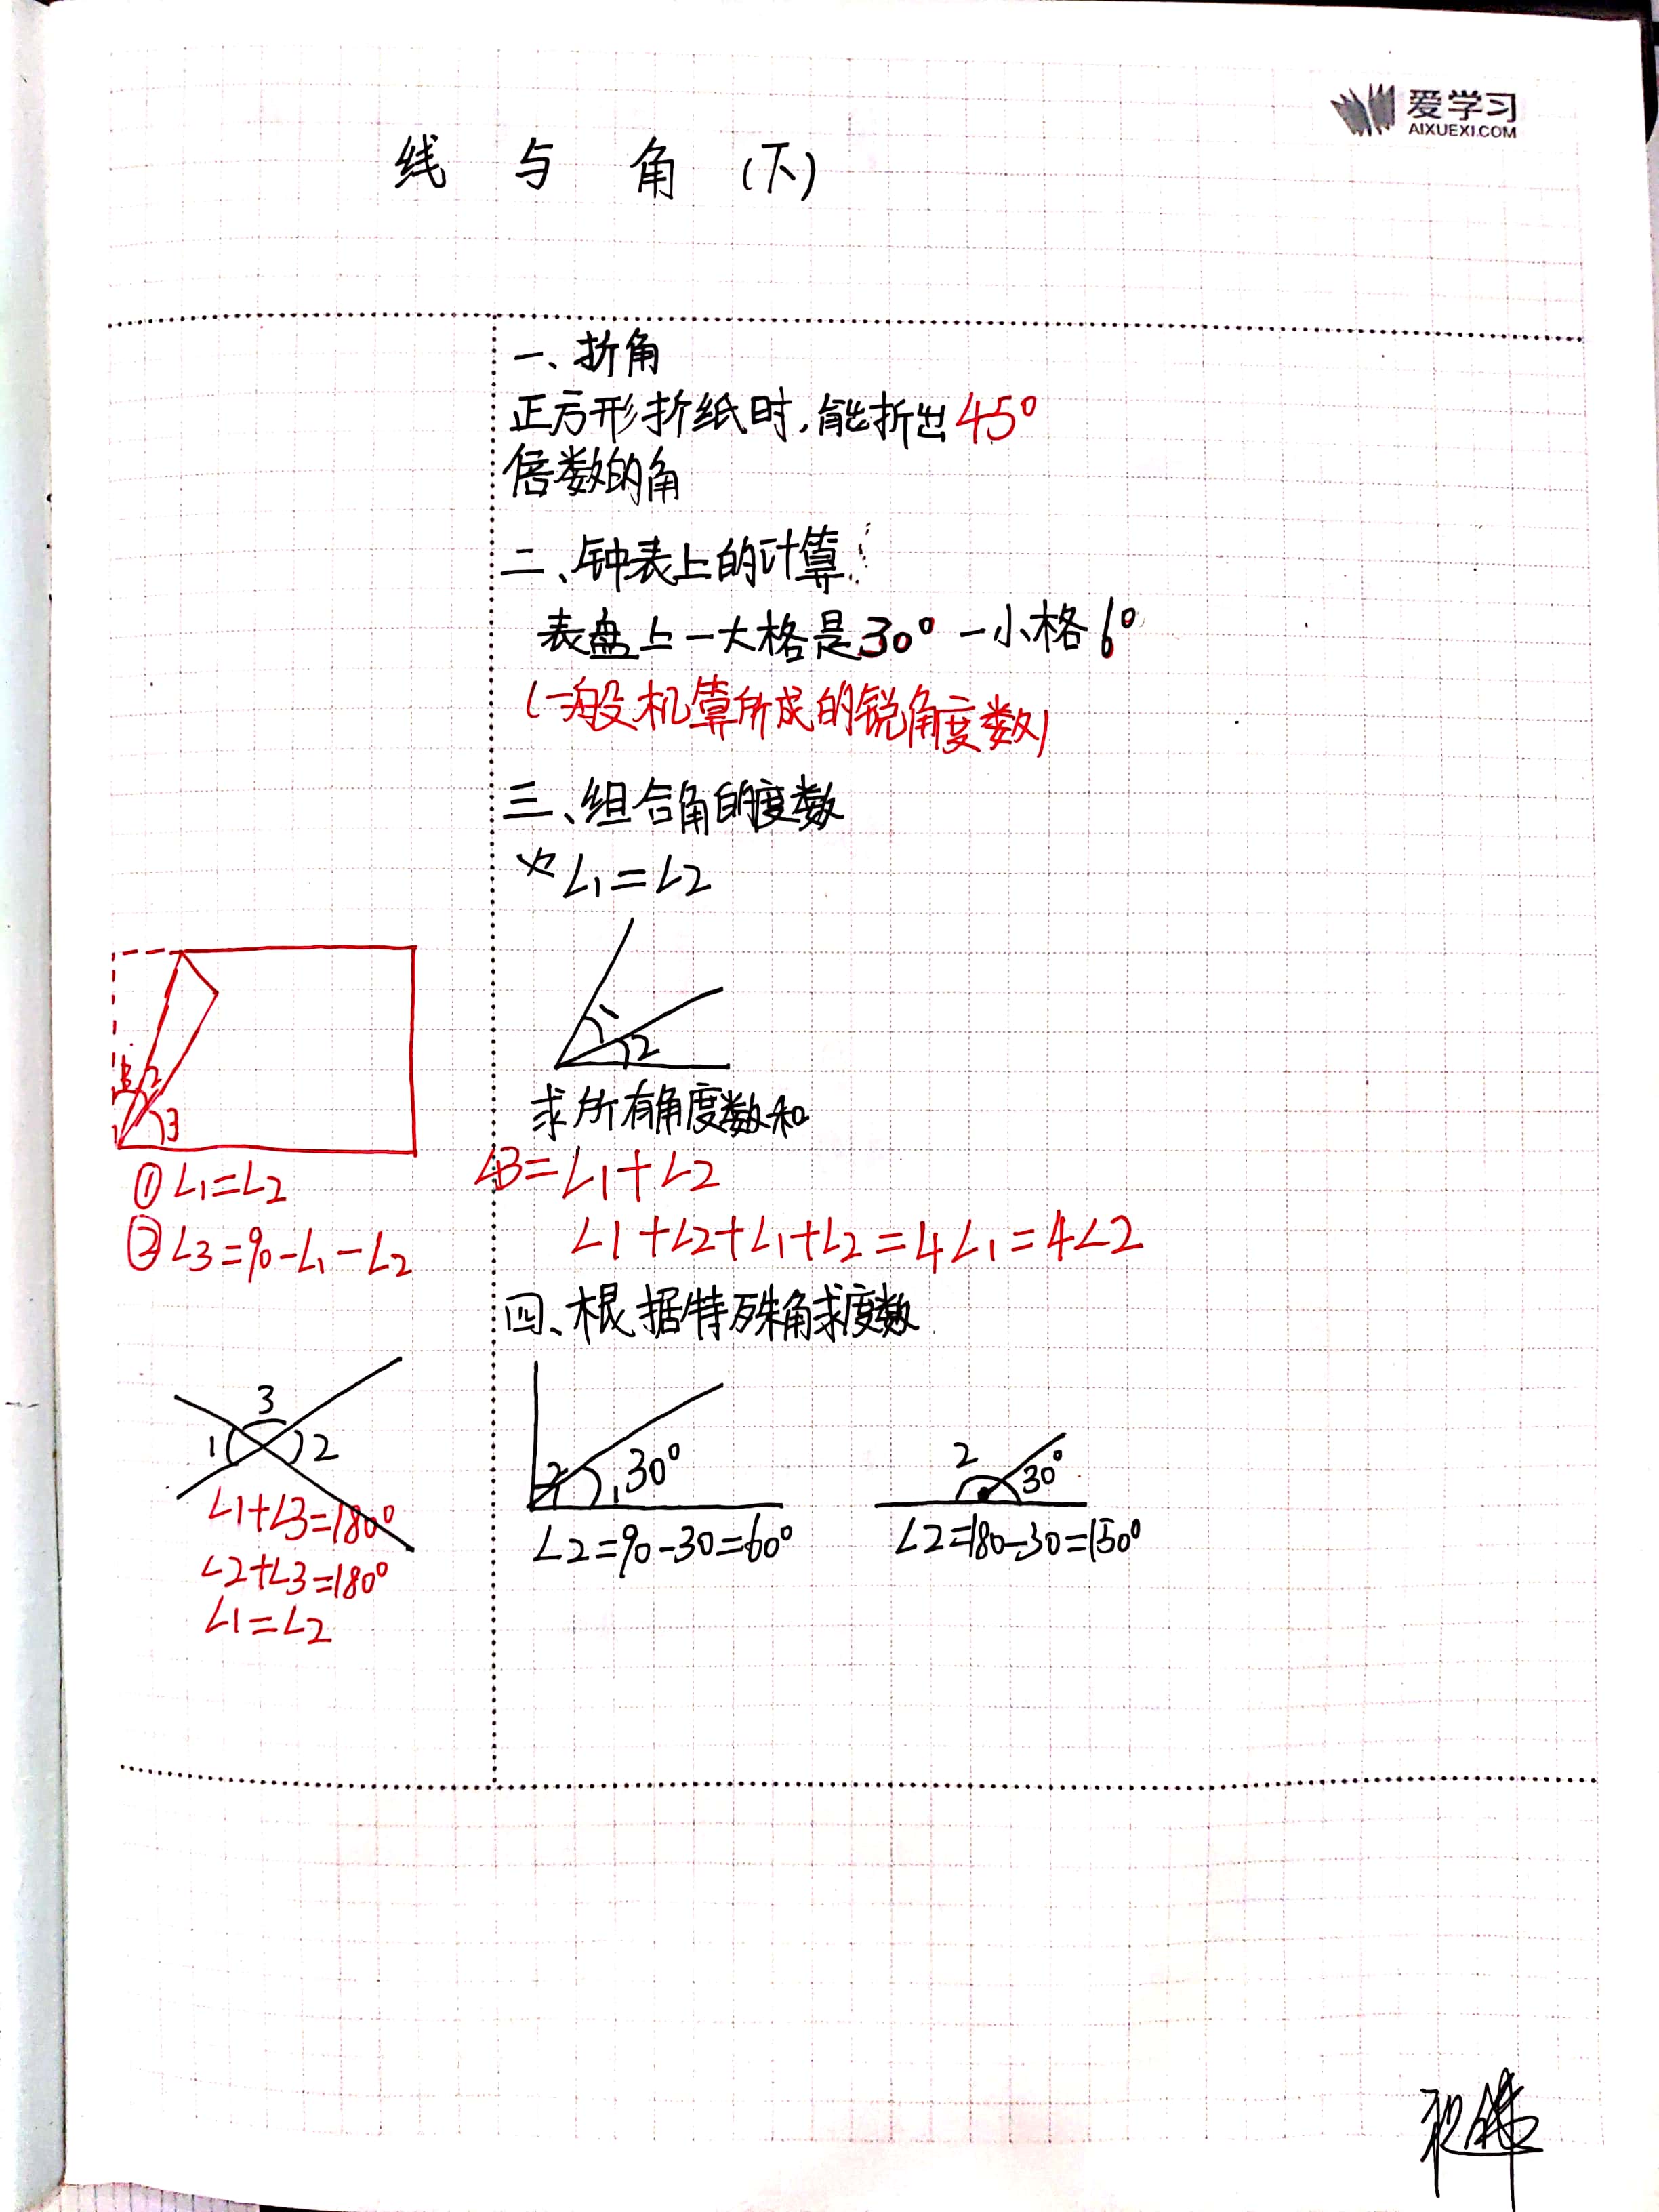 爱学习
AIXUEXI.COM
线 与 角 (下)
一、折角
正方形折纸时,能折出45°
倍数的角
二、钟表上的计算
表盘上一大格是30° 一小格6°
(一般机算所成的锐角度数)
三、组合角的度数
∠1=∠2
1
2
求所有角度数和
∠3=∠1+∠2
∠1+∠2+∠1+∠2=4∠1=4∠2
四、根据特殊角求度数
2
30°
1
∠2=90-30=60°
2
30°
∠2=180-30=150°
1
2
3
①∠1=∠2
②∠3=90-∠1-∠2
3
1
2
∠1+∠3=180°
∠2+∠3=180°
∠1=∠2